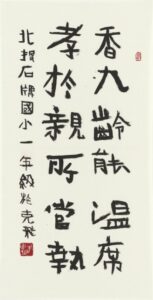 香九齡能溫席
孝於親所當執
北投石牌國小一年級